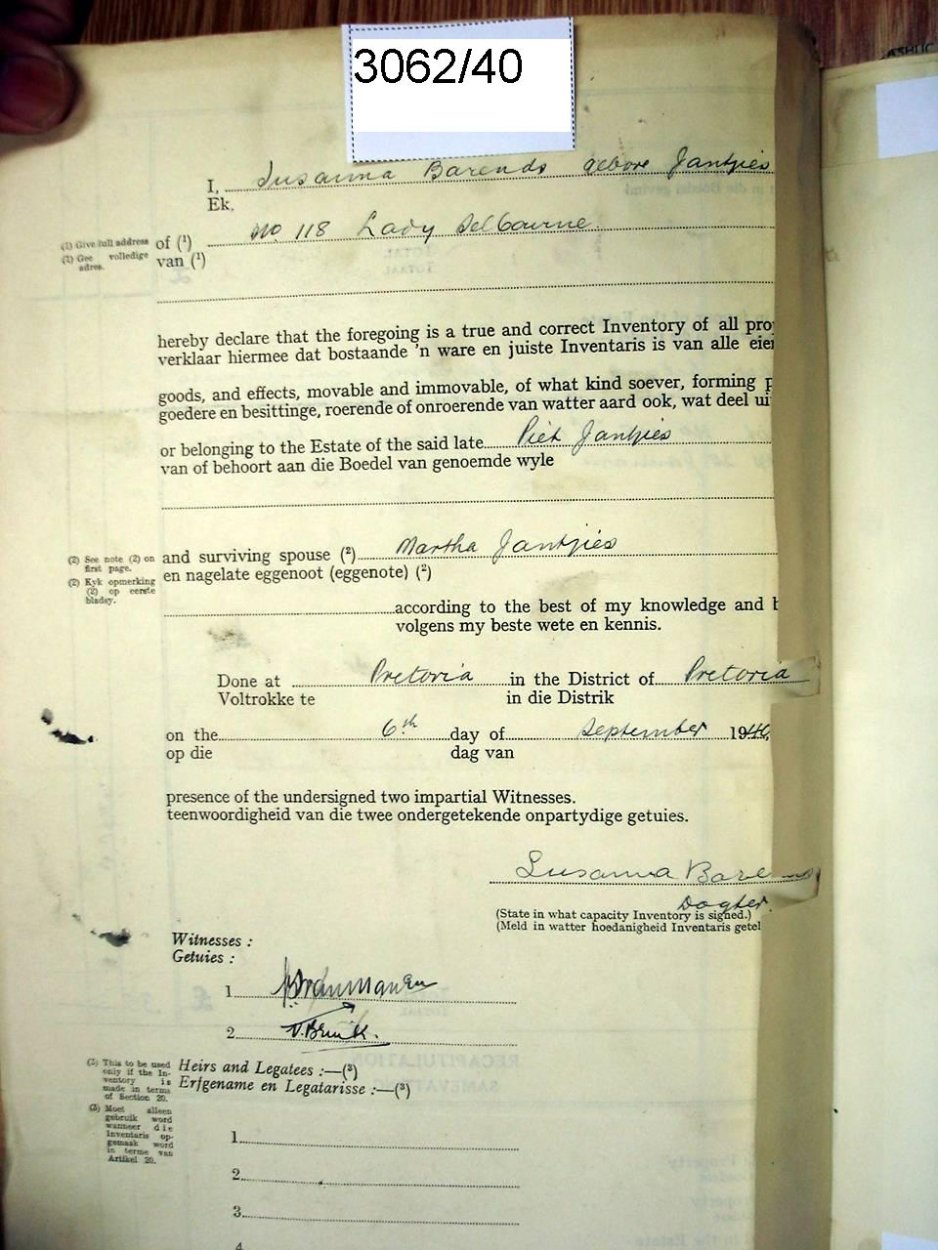 3062/40
I, Susanna Barends gebore Jantjies
Ek,
(1) Give full address of (¹) No 118 Lady Selbourne.
(1) Gee volledige adres. van (¹)
hereby declare that the foregoing is a true and correct Inventory of all pro
verklaar hiermee dat bostaande 'n ware en juiste Inventaris is van alle eie
goods, and effects, movable and immovable, of what kind soever, forming p
goedere en besittinge, roerende of onroerende van watter aard ook, wat deel ui
or belonging to the Estate of the said late Piet Jantjies
van of behoort aan die Boedel van genoemde wyle
(2) See note (2) on first page. and surviving spouse (²) Martha Jantjies
(2) Kyk opmerking (2) op eerste bladsy. en nagelate eggenoot (eggenote) (²)
according to the best of my knowledge and b
volgens my beste wete en kennis.
Done at Pretoria in the District of Pretoria
Voltrokke te in die Distrik
on the 6th day of September 1940,
op die dag van
presence of the undersigned two impartial Witnesses.
teenwoordigheid van die twee ondergetekende onpartydige getuies.
Susanna Barends
Dogter.
(State in what capacity Inventory is signed.)
(Meld in watter hoedanigheid Inventaris getel
Witnesses :
Getuies :
1
2
(3) This to be used only if the Inventory is made in terms of Section 20. Heirs and Legatees :—(³)
Erfgename en Legatarisse :—(³)
(3) Moet alleen gebruik word wanneer die Inventaris opgemaak word in terme van Artikel 20.
1
2
3
4